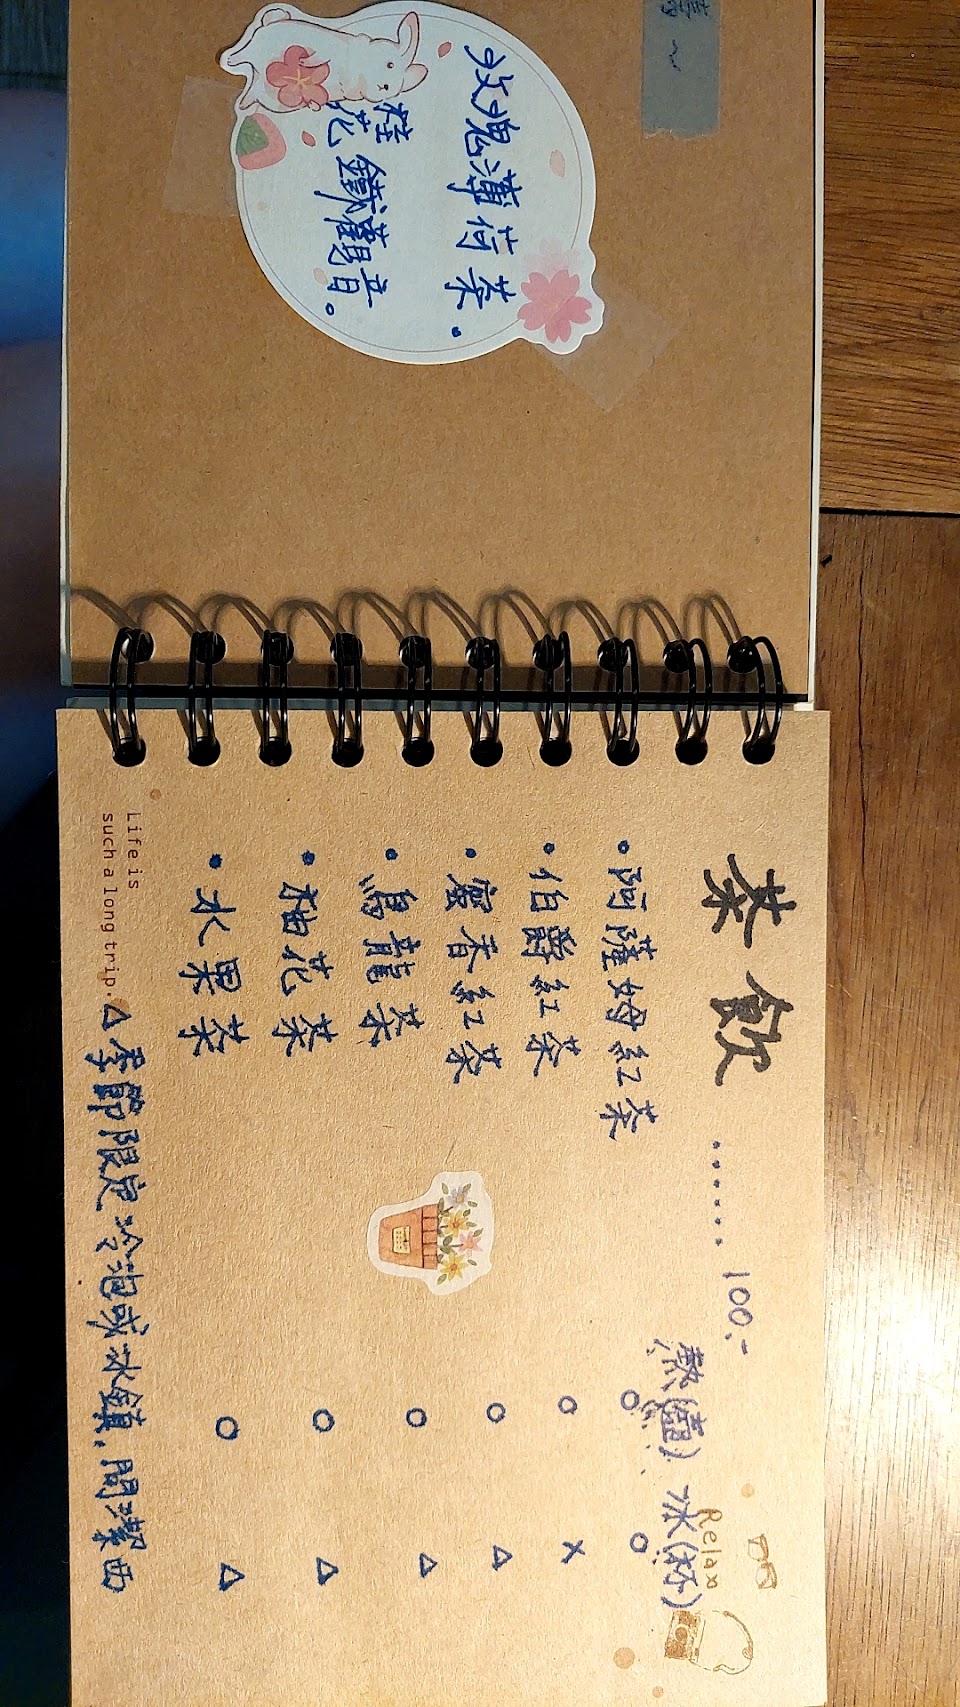 玫瑰薄荷茶。
桂花鐵觀音。
茶飲 ....... 100.-
熱(壺) 冰(杯)
• 阿薩姆紅茶 ○ ○
• 伯爵紅茶 ○ ×
• 蜜香紅茶 ○ △
• 烏龍茶 ○ △
• 柚花茶 ○ △
• 水果茶 ○ △
△季節限定冷泡或冰鎮.問潔西
Life is
such a long trip.
Relax